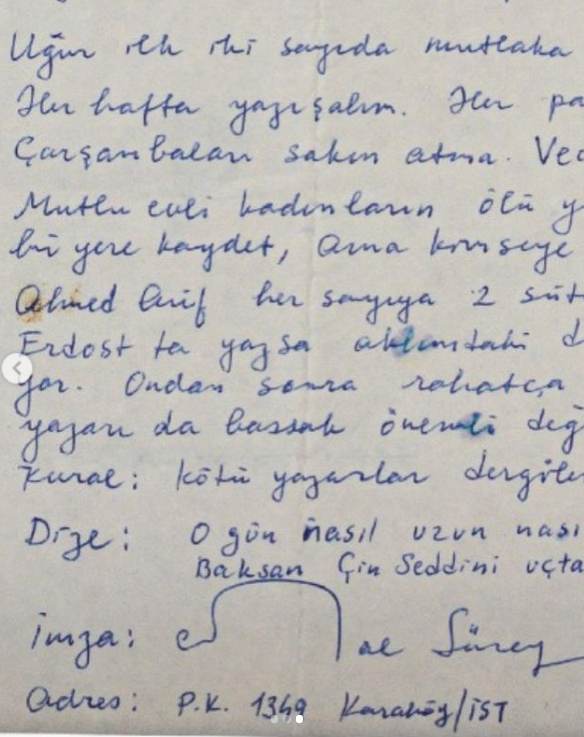 Uğur ilk iki sayıda mutlaka
Her hafta yazışalım. Her pa
Çarşambaları sakın atma. Vec
Mutlu evli kadınların ölü y
bir yere kaydet, ama kimseye
Ahmed Arif her sayıya 2 süt
Erdost ta yazsa aklımdaki d
yor. Ondan sonra rahatça
yazarı da bassak önemli değ
Kural: kötü yazarlar dergile
Dize: O gün nasıl uzun nası
Baksan Çin Seddini uçta
İmza: Cemal Sürey
Adres: P.K. 1349 Karaköy/İST